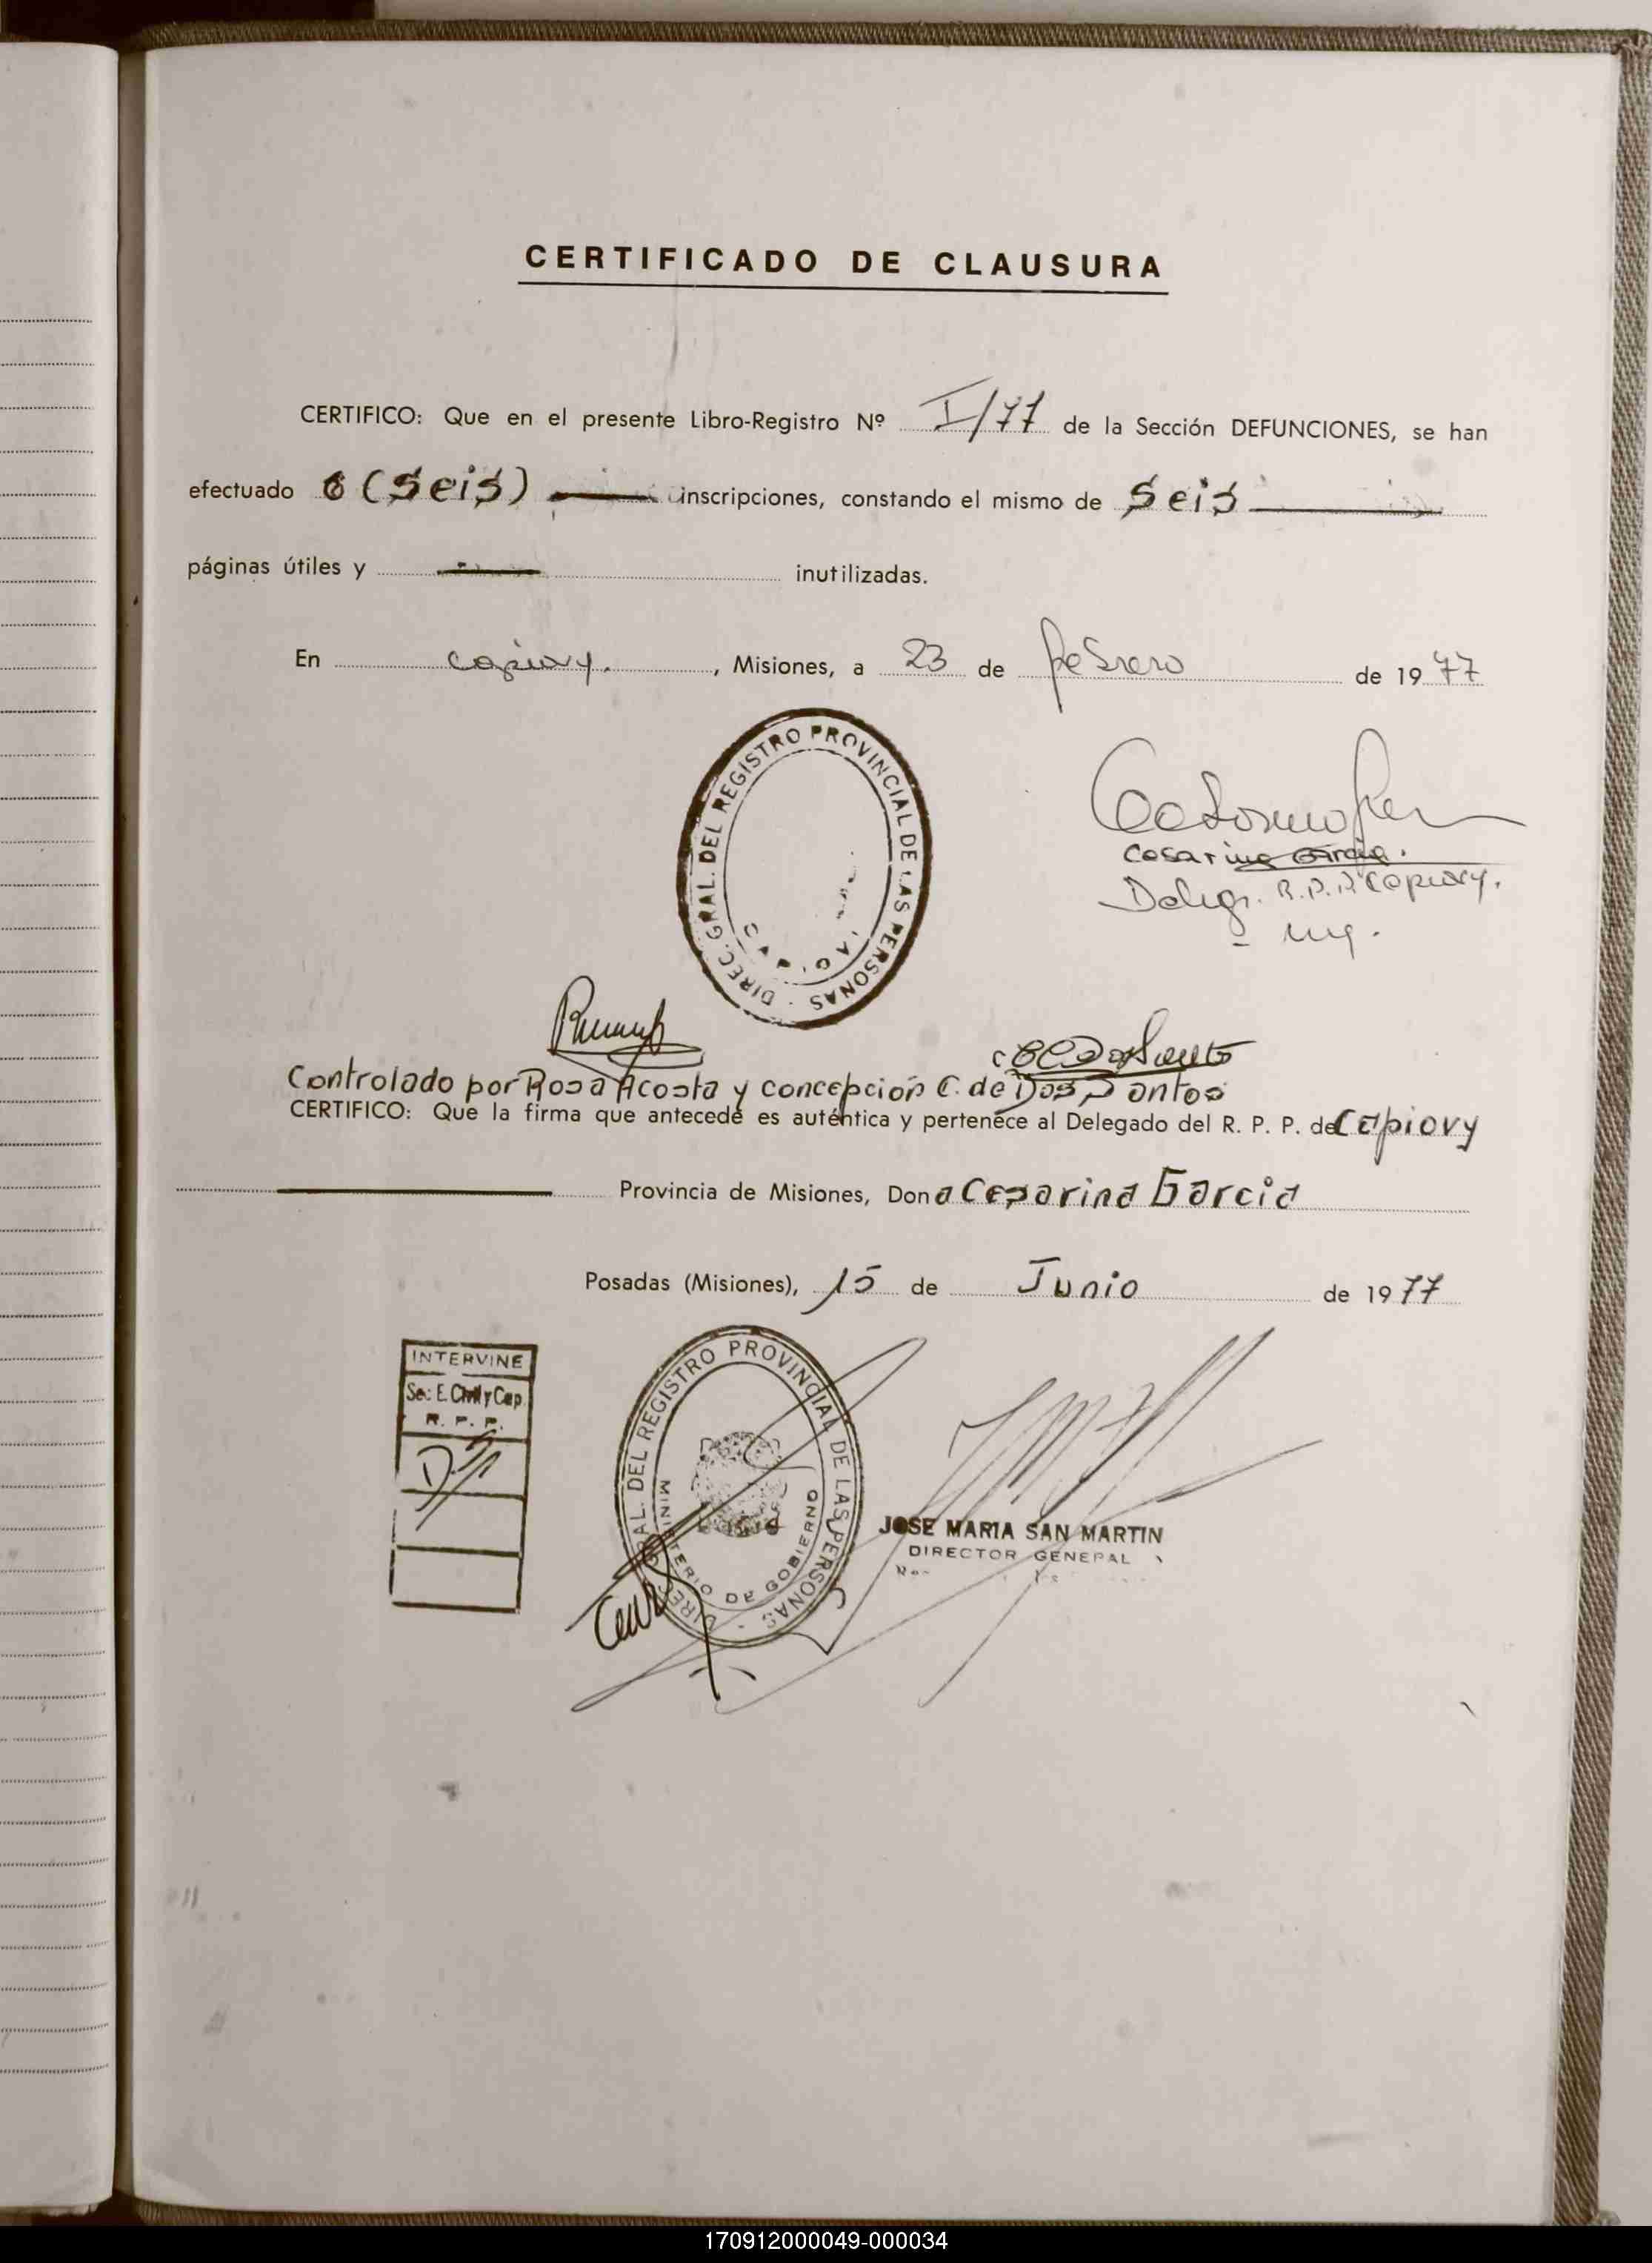 CERTIFICADO DE CLAUSURA
CERTIFICO: Que en el presente Libro-Registro Nº I/77 de la Sección DEFUNCIONES, se han
efectuado 6 (Seis) inscripciones, constando el mismo de Seis
páginas útiles y inutilizadas.
En Capiovy. , Misiones, a 23 de febrero de 1977
DIREC. GRAL. DEL REGISTRO PROVINCIAL DE LAS PERSONAS
Cesarina Garcia.
Deleg. R.P.P. Capiovy.
Controlado por Rosa Acosta y Concepción C. de Dos Santos
CERTIFICO: Que la firma que antecede es auténtica y pertenece al Delegado del R. P. P. de Capiovy
Provincia de Misiones, Dona Cesarina Garcia
Posadas (Misiones), 15 de Junio de 1977
INTERVINE
Sec. E. Civil y Cap.
R. P. P.
DIREC. GRAL. DEL REGISTRO PROVINCIAL DE LAS PERSONAS
MINISTERIO DE GOBIERNO
JOSE MARIA SAN MARTIN
DIRECTOR GENERAL
170912000049-000034